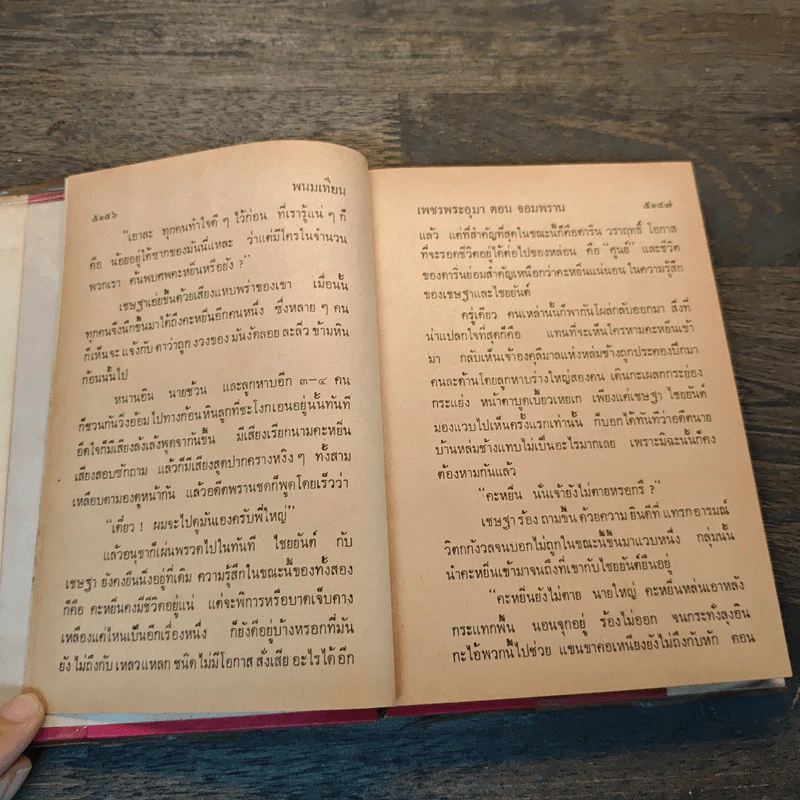 ๕๑๔๖
พนมเทียน
“เอาละ ทุกคนทำใจดี ๆ ไว้ก่อน ที่เรารู้แน่ ๆ ก็
คือ น้อยอยู่ใต้ซากของมันนี่แหละ ว่าแต่มีใครในจำนวน
พวกเรา ค้นพบศพคะหยิ่นหรือยัง ?”
เชษฐาเอ่ยขึ้นด้วยเสียงแหบพร่าของเขา เมื่อนั้น
ทุกคนจึงนึกขึ้นมาได้ถึงคะหยิ่นอีกคนหนึ่ง ซึ่งหลาย ๆ คน
ก็เห็นจะ แจ้งกับ ตาว่าถูก งวงของ มันงัดลอย ละลิ่ว ข้ามหิน
ก้อนนั้นไป
หนานอิน นายชวน และลูกหาบอีก ๓–๔ คน
ก็ชวนกันวิ่งอ้อมไปทางก้อนหินลูกที่ชะโงกเอนอยู่นั้นทันที
อึดใจก็มีเสียงล้งเล้งพูดจากันขึ้น มีเสียงเรียกนามคะหยิ่น
เสียงสอบซักถาม แล้วก็มีเสียงสูดปากครางหงิง ๆ ทั้งสาม
เหลือบตามองดูหน้ากัน แล้วอดีตพรานชดก็พูดโดยเร็วว่า
“เดี๋ยว ! ผมจะไปดูมันเองครับพี่ใหญ่”
แล้วอนุชาก็เผ่นพรวดไปในทันที ไชยยันต์ กับ
เชษฐา ยังคงยืนนิ่งอยู่ที่เดิม ความรู้สึกในขณะนี้ของทั้งสอง
ก็คือ คะหยิ่นคงมีชีวิตอยู่แน่ แต่จะพิการหรือบาดเจ็บคาง
เหลืองแค่ไหนเป็นอีกเรื่องหนึ่ง ก็ยังดีอยู่บ้างหรอกที่มัน
ยัง ไม่ถึงกับ เหลวแหลก ชนิด ไม่มีโอกาส สั่งเสีย อะไรได้ อีก
เพชรพระอุมา ตอน จอมพราน
๕๑๔๗
แล้ว แต่ที่สำคัญที่สุดในขณะนี้ก็คือดาริน วราฤทธิ์ โอกาส
ที่จะรอดชีวิตอยู่ได้ต่อไปของหล่อน คือ “ศูนย์” และชีวิต
ของดารินย่อมสำคัญเหนือกว่าคะหยิ่นแน่นอน ในความรู้สึก
ของเชษฐาและไชยยันต์
ครู่เดียว คนเหล่านั้นก็พากันโผล่กลับออกมา สิ่งที่
น่าแปลกใจที่สุดก็คือ แทนที่จะเห็นใครหามคะหยิ่นเข้า
มา กลับเห็นเจ้าองคุลีมาลแห่งหล่มช้างถูกประคองปีกมา
คนละด้านโดยลูกหาบร่างใหญ่สองคน เดินกะเผลกกระย่อง
กระแย่ง หน้าตาบูดเบี้ยวเหยเก เพียงแค่เชษฐา ไชยยันต์
มองแวบไปเห็นครั้งแรกเท่านั้น ก็บอกได้ทันทีว่าอดีตนาย
บ้านหล่มช้างแทบไม่เป็นอะไรมากเลย เพราะมิฉะนั้นก็คง
ต้องหามกันแล้ว
“คะหยิ่น นั่นเจ้ายังไม่ตายหรอกรึ ?”
เชษฐา ร้อง ถามขึ้น ด้วยความ ยินดีที่ แทรก อารมณ์
วิตกกังวลจนบอกไม่ถูกในขณะนี้ขึ้นมาแวบหนึ่ง กลุ่มนั้น
นำคะหยิ่นเข้ามาจนถึงที่เขากับไชยยันต์ยืนอยู่
“คะหยิ่นยังไม่ตาย นายใหญ่ คะหยิ่นหล่นเอาหลัง
กระแทกพื้น นอนจุกอยู่ ร้องไม่ออก จนกระทั่งลุงอิน
กะไอ้พวกนี้ไปช่วย แขนขาคอเหนียงยังไม่ถึงกับหัก ตอน